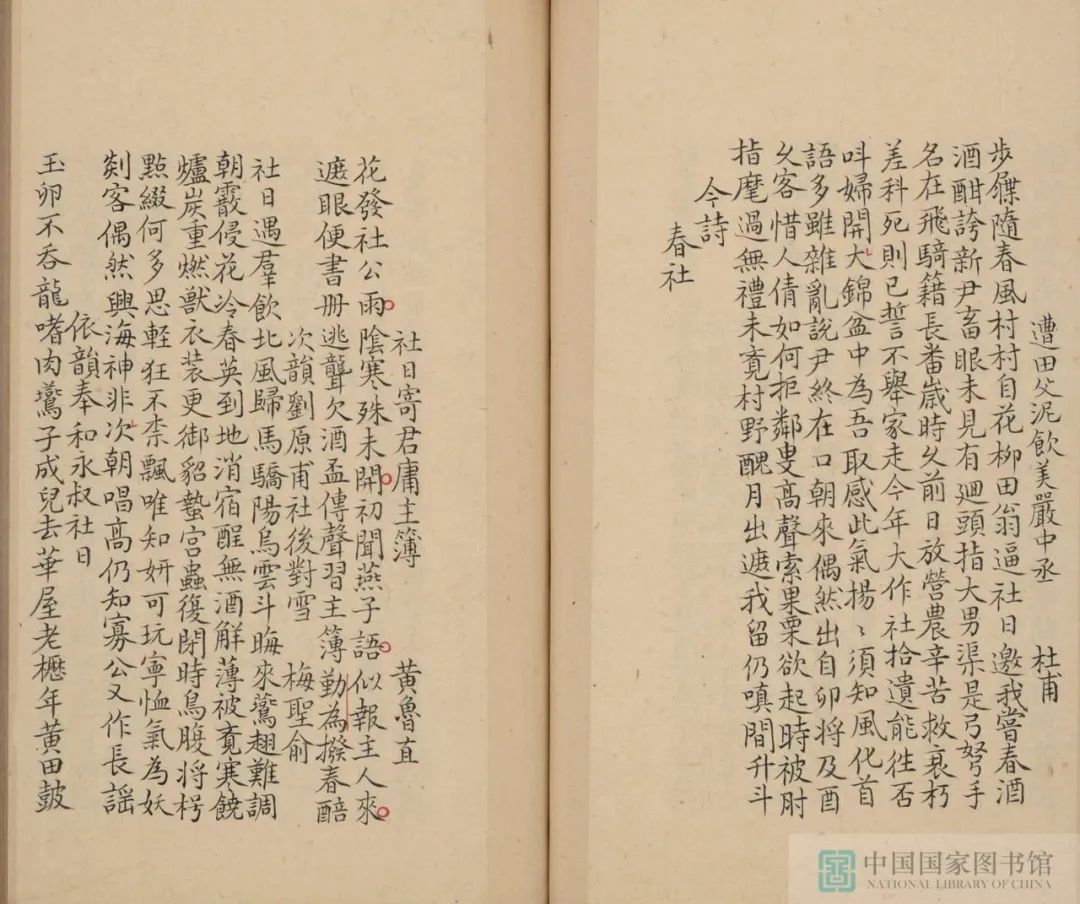 遭田父泥飲美嚴中丞 杜甫
步屧隨春風村村自花柳田翁逼社日邀我嘗春酒
酒酣誇新尹畜眼未見有廻頭指大男渠是弓弩手
名在飛騎籍長番歲時久前日放營農辛苦救衰朽
差科死則已誓不舉家走今年大作社拾遺能徃否
呌婦開大錦盆中為吾取感此氣揚〻須知風化首
語多雖雜亂說尹終在口朝來偶然出自卯將及酉
久客惜人情如何拒鄰叟高聲索果栗欲起時被肘
指麾過無禮未竟村野醜月出遮我留仍嗔問升斗
今詩
春社
社日寄君庸主簿 黃魯直
花發社公雨陰寒殊未開初聞燕子語似報主人來
遮眼便書册逃聾欠酒盃傳聲習主簿勤為撥春醅
次韻劉原甫社後對雪 梅聖俞
社日遇羣飲北風歸馬驕陽烏雲斗晦來鷰翅難調
朝霰侵花冷春英到地消宿酲無酒解薄被竟寒饒
爐炭重燃獸衣裝更御貂蟄宫蟲復閉時鳥腹将枵
點綴何多思輕狂不柰飄唯知妍可玩寧恤氣為妖
剡客偶然興海神非次朝唱高仍知寡公又作長謡
依韻奉和永叔社日
玉卵不吞龍嗜肉鷰子成兒去華屋老櫪年黃田鼓